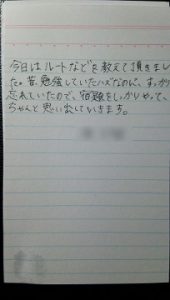 今日はルートなどを教えて頂きまし
た。昔、勉強していたハズなのに、すっかり
忘れていたので、宿題をしっかりやって、
ちゃんと思い出していきます。